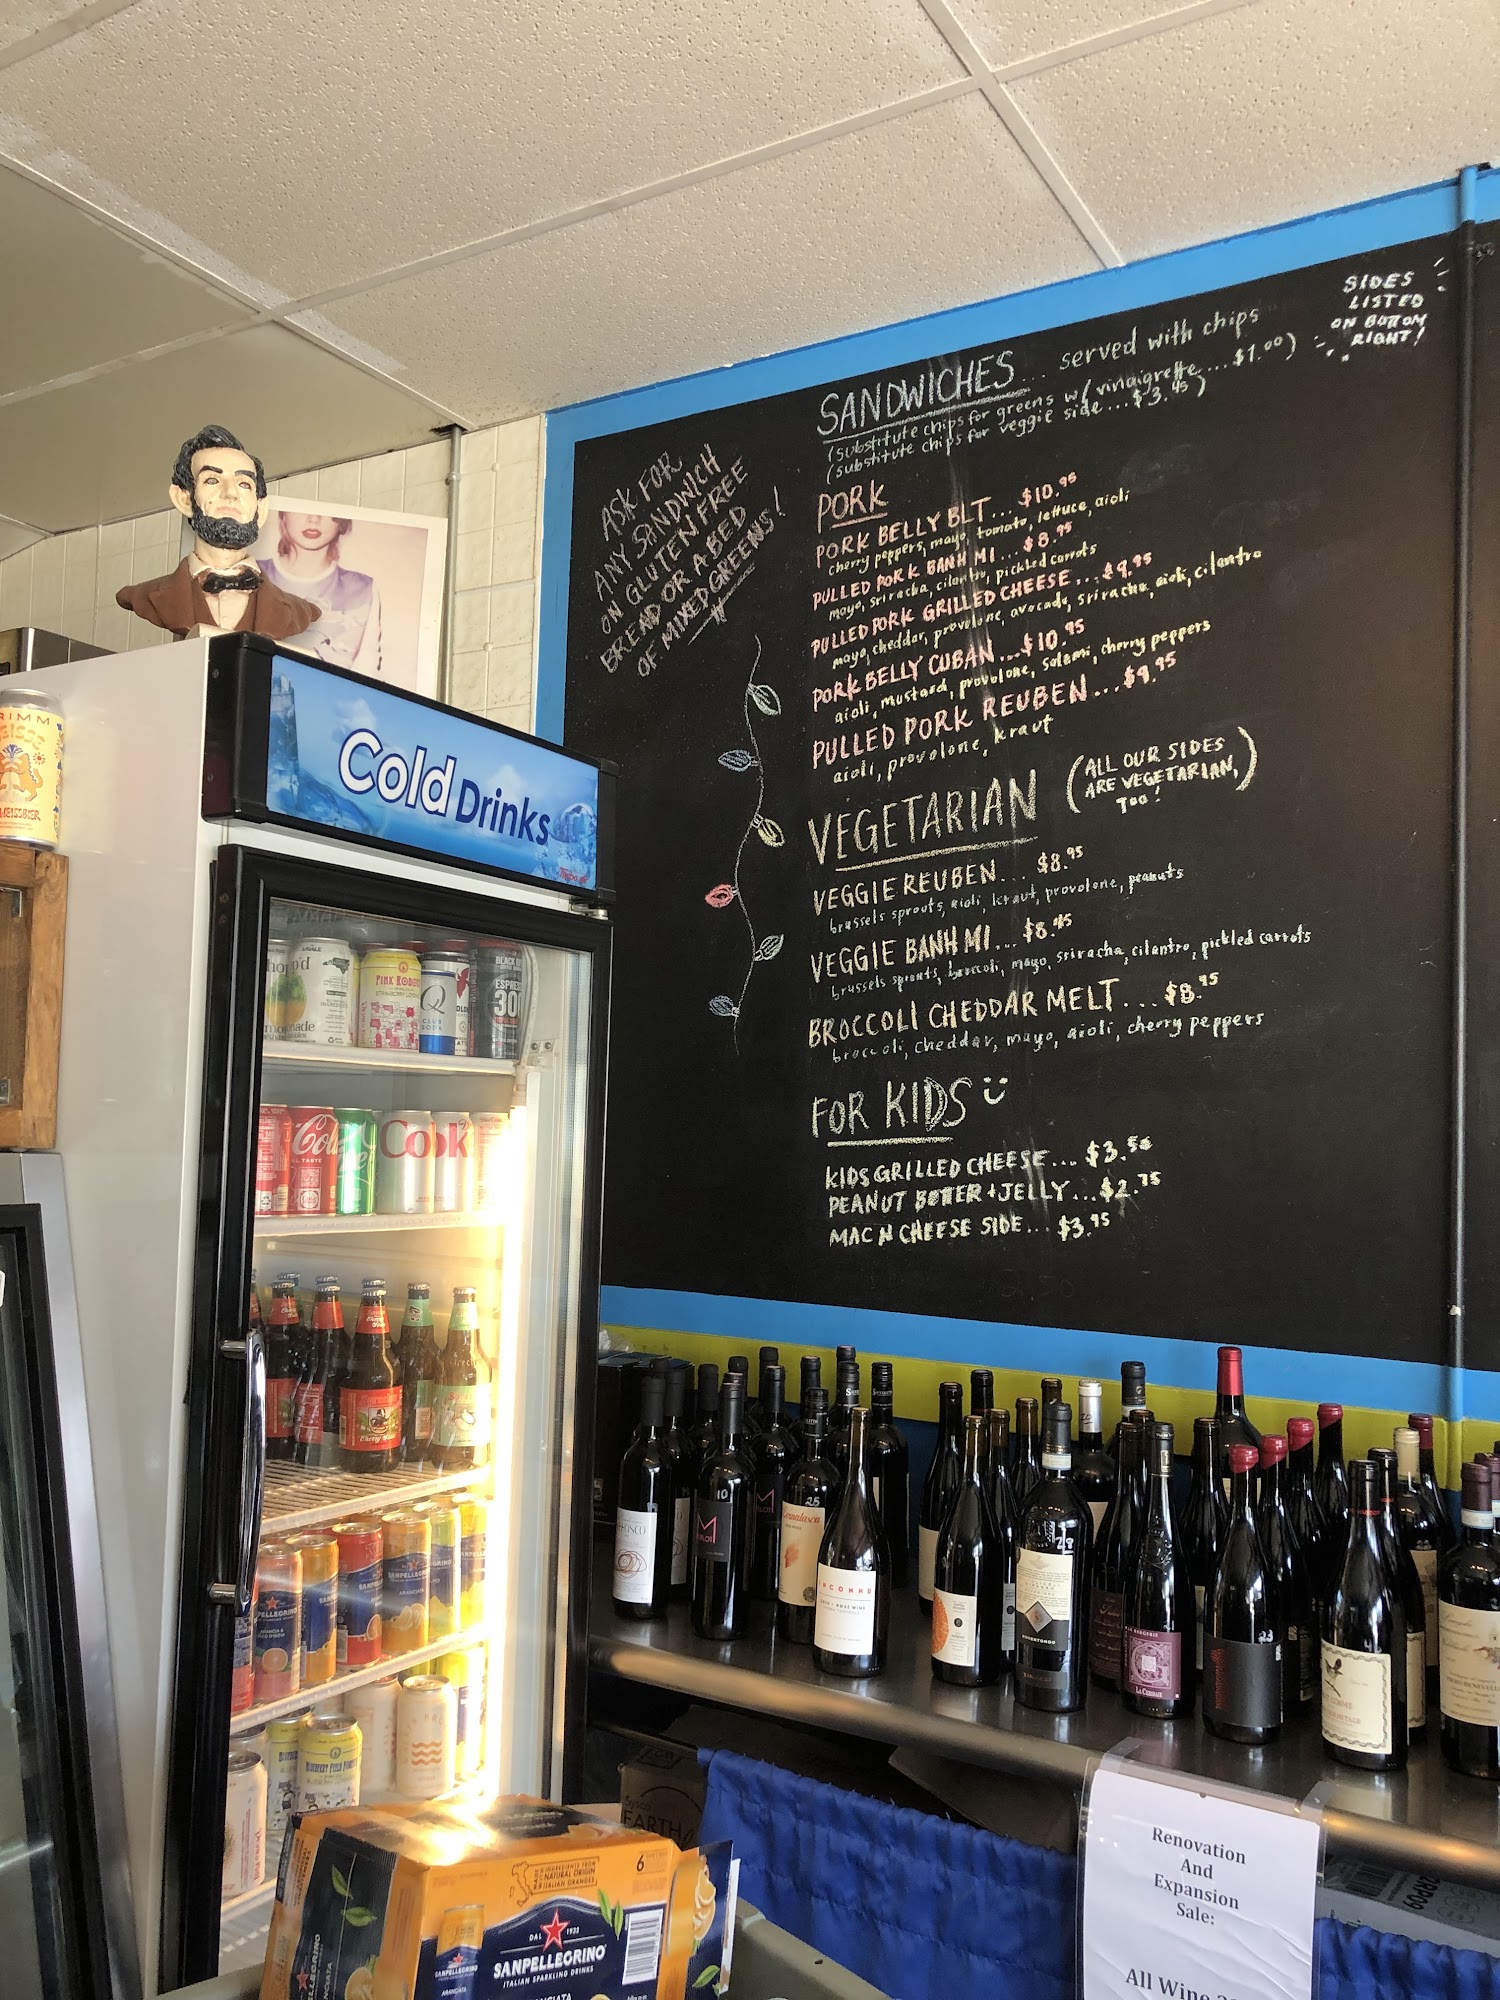 SIDES
LISTED
ON BOTTOM
RIGHT!
SANDWICHES... served with chips
(substitute chips for greens w/ vinaigrette....$1.00)
(substitute chips for veggie side...$3.45)
ASK FOR
ANY SANDWICH
ON GLUTEN FREE
BREAD OR A BED
OF MIXED GREENS!
PORK
PORK BELLY BLT... $10.95
cherry peppers, mayo, tomato, lettuce, aioli
PULLED PORK BANH MI... $8.95
mayo, sriracha, cilantro, pickled carrots
PULLED PORK GRILLED CHEESE...$9.95
mayo, cheddar, provolone, avocado, sriracha, aioli, cilantro
PORK BELLY CUBAN...$10.95
aioli, mustard, provolone, salami, cherry peppers
PULLED PORK REUBEN...$9.95
aioli, provolone, kraut
VEGETARIAN
(ALL OUR SIDES
ARE VEGETARIAN,
TOO!)
VEGGIE REUBEN... $8.95
brussels sprouts, aioli, kraut, provolone, peanuts
VEGGIE BANH MI... $8.95
brussels sprouts, broccoli, mayo, sriracha, cilantro, pickled carrots
BROCCOLI CHEDDAR MELT...$8.95
broccoli, cheddar, mayo, aioli, cherry peppers
FOR KIDS
KIDS GRILLED CHEESE... $3.50
PEANUT BUTTER + JELLY...$2.75
MAC N CHEESE SIDE... $3.95
Cold Drinks
RIMM
EISSE
WEISSBIER
PINK ROBOT
Q
CLUB
SODA
BLACK
ESPRE
300
Cola
Cook
Cherry
SANPELLEGRINO
ARANCIATA
BLUEBERRY
10
25
NCONNU
29
LA CURIEUSE
23
EARTH
6
NATURAL ORIGIN
ITALIAN ORANGES
DAL 1932
SANPELLEGRINO
ITALIAN SPARKLING DRINKS
SANPELLEGRINO
ARANCIATA
Renovation
And
Expansion
Sale:
All Wine